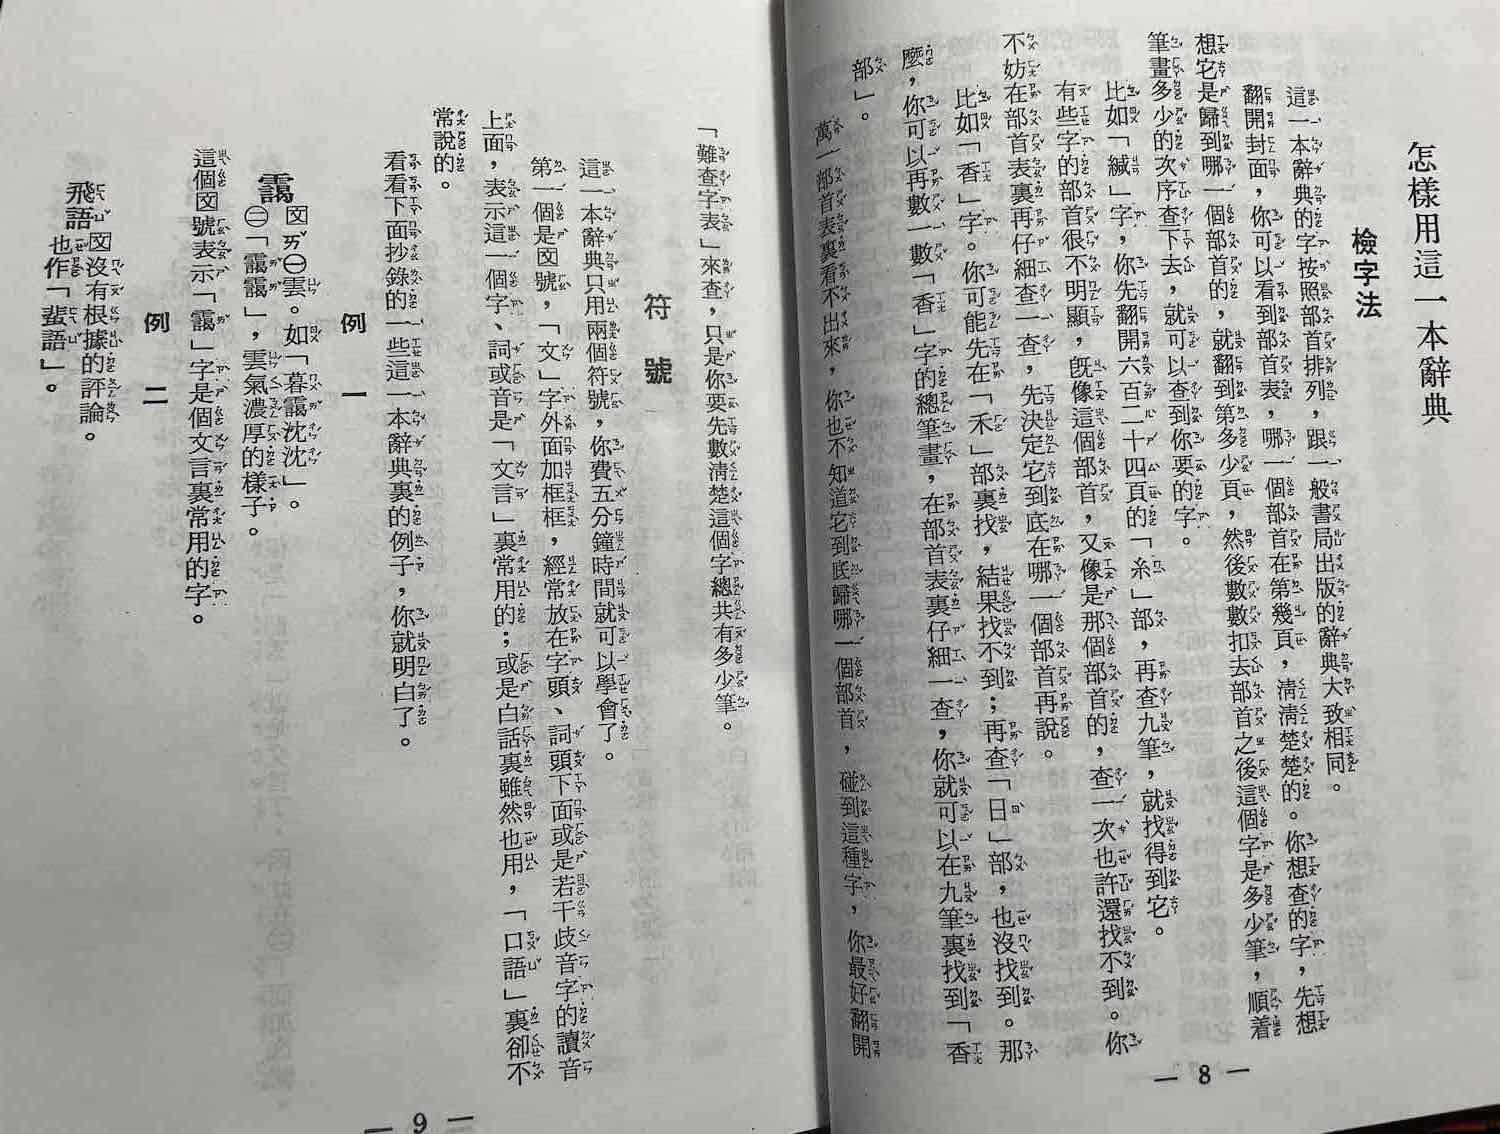 怎樣用這一本辭典
檢字法
這一本辭典的字按照部首排列，跟一般書局出版的辭典大致相同。
翻開封面，你可以看到部首表，哪一個部首在第幾頁，清清楚楚的。你想查的字，先想
想它是歸到哪一個部首的，就翻到第多少頁，然後數數扣去部首之後這個字是多少筆，順着
筆畫多少的次序查下去，就可以查到你要的字。
比如「緘」字，你先翻開六百二十四頁的「糸」部，再查九筆，就找得到它。
有些字的部首很不明顯，既像這個部首，又像是那個部首的，查一次也許還找不到。你
不妨在部首表裏再仔細查一查，先決定它到底在哪一個部首再說。
比如「香」字。你可能先在「禾」部裏找，結果找不到；再查「日」部，也沒找到。那
麼，你可以再數一數「香」字的總筆畫，在部首表裏仔細一查，你就可以在九筆裏找到「香
部」。
萬一部首表裏看不出來，你也不知道它到底歸哪一個部首，碰到這種字，你最好翻開
— 8 —
「難查字表」來查，只是你要先數清楚這個字總共有多少筆。
符號
這一本辭典只用兩個符號，你費五分鐘時間就可以學會了。
第一個是囗文號，「文」字外面加框框，經常放在字頭、詞頭下面或是若干歧音字的讀音
上面，表示這一個字、詞或音是「文言」裏常用的；或是白話裏雖然也用，「口語」裏卻不
常說的。
看看下面抄錄的一些這一本辭典裏的例子，你就明白了。
例一
靄 文 ㄞˇ ㊀雲。如「暮靄沈沈」。
㊁「靄靄」，雲氣濃厚的樣子。
這個文號表示「靄」字是個文言裏常用的字。
例二
飛語 文 沒有根據的評論。
也作「蜚語」。
— 9 —